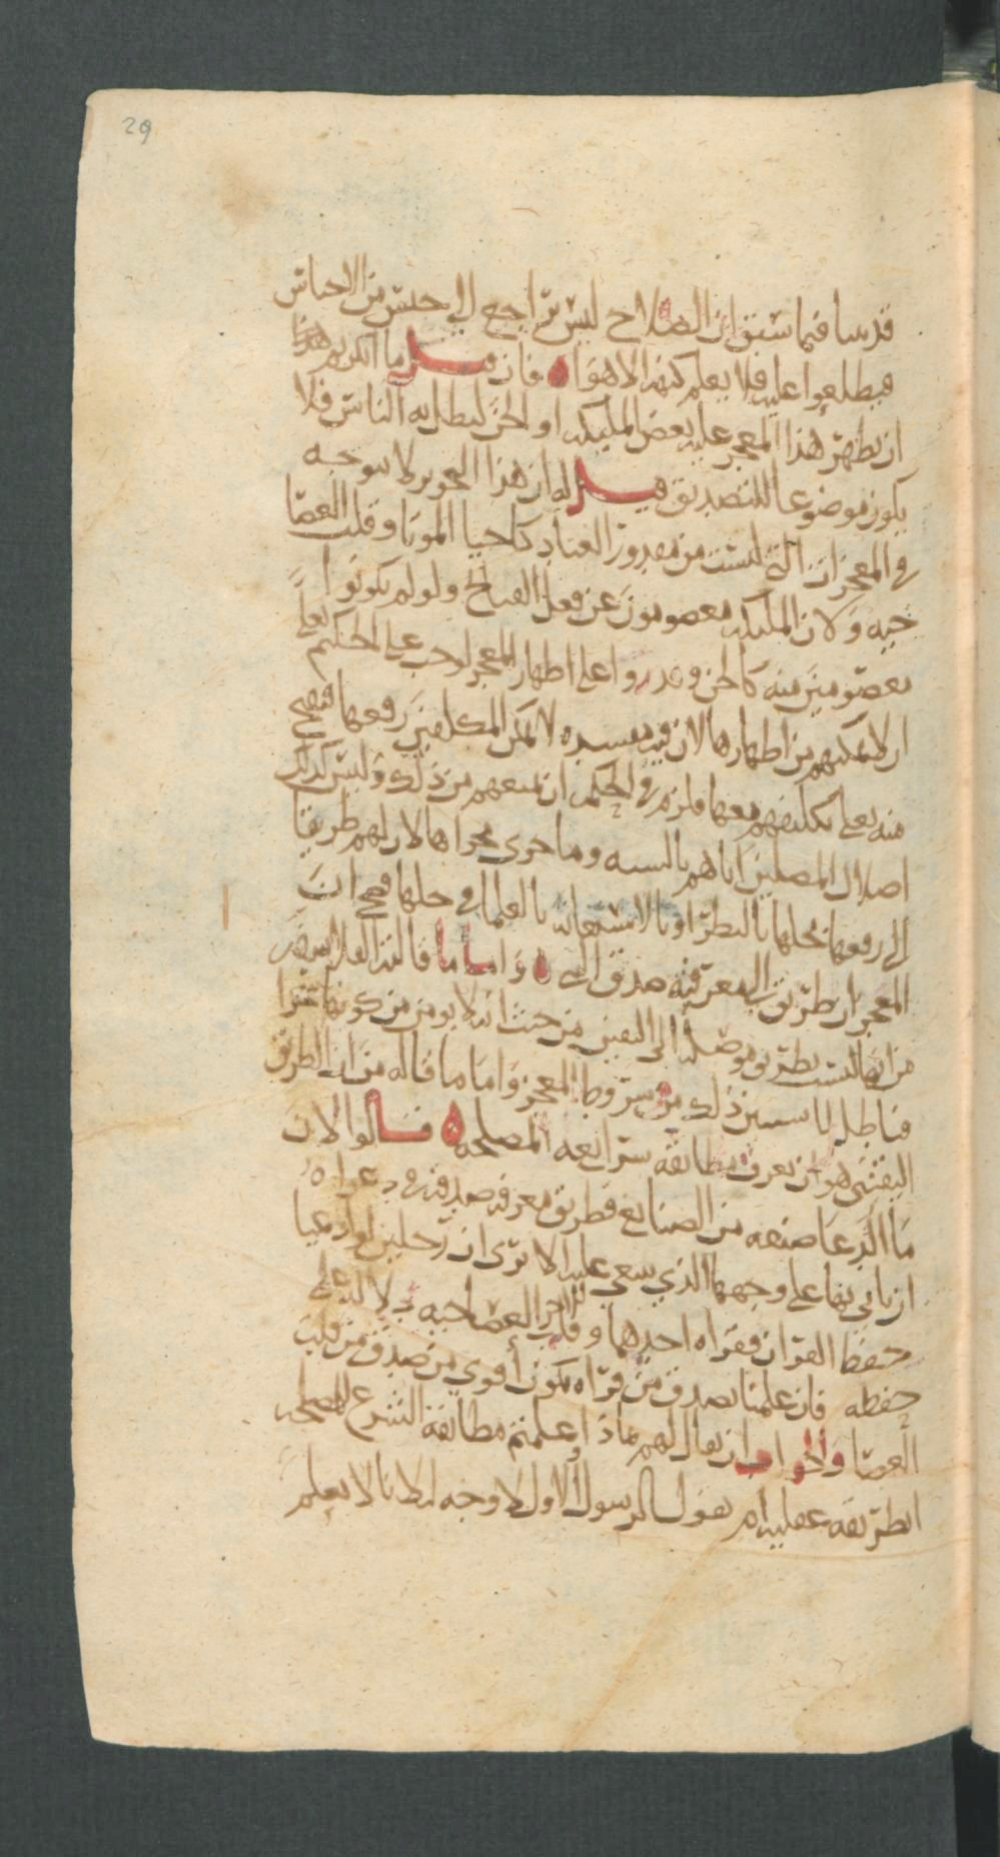 29
قد بينا فيما سبق ان الصلاح ليس براجع الى جنس من الاجناس
فيطلعوا عليه فلا يعلم كنهه الا هو اه فان قيل ما انكرتم هذا
ان يظهر هذا المعجز عليه بعض المليكه او الجن ليضل به الناس فلا
يكون موضوعا للتصديق قيل له ان هذا التجويز لا يتوجه
في المعجزات التي ليست من مقدور العباد كاحيا الموتا وقلب العصا
حيه ولان المليكه معصومون عن فعل القبائح ولو لم يكونوا
معصومين منه كالجن وقدروا على اظهار المعجز لوجب على الحكيم تعلى
ان لا يمكنهم من اظهارها لان فيه مفسده لا يمكن المكلفين رفعها فيقبح
منه تعلى تكليفهم معها فلزم في الحكمه ان يمنعهم من ذلك وليس كذلك
اضلال المضلين اياهم بالشبه وما جرى مجراها لان لهم طريقا
الى رفعها بحلها بالنظر او بالاستعانه بالعلما في حلها فصح ان
المعجز ان طريق الى معرفته صدق النبي ه واما ما قالته الفلاسفه
من انها ليست بطريق موصله الى اليقين من حيث انه لا يومن من كونها سحرا
فباطل لما سنبين ذلك من شروط المعجز واما ما قاله من ان الطريق
اليقيني هو ان يعرف مطابقه شرائعه المصلحه ه قالوا لان
ما ادعا صنعه من الصنايع فطريق معرفه صدقه في دعواه
ان ياتي بها على وجهها الذي ينبغي عليه الا ترى ان رجلين لو ادعيا
حفظ القران فقراه احدهما وقلب الاخر العصا حيه دلاله على
حفظه فان علمنا بصدق من قراه يكون اقوى من صدق من قلب
العصا والجواب ان يقال لهم بماذا علمتم مطابقه الشرع للمصلحه
ابطريقه عقليه ام بقول الرسول والاول لا وجه له لانا لا نعلم